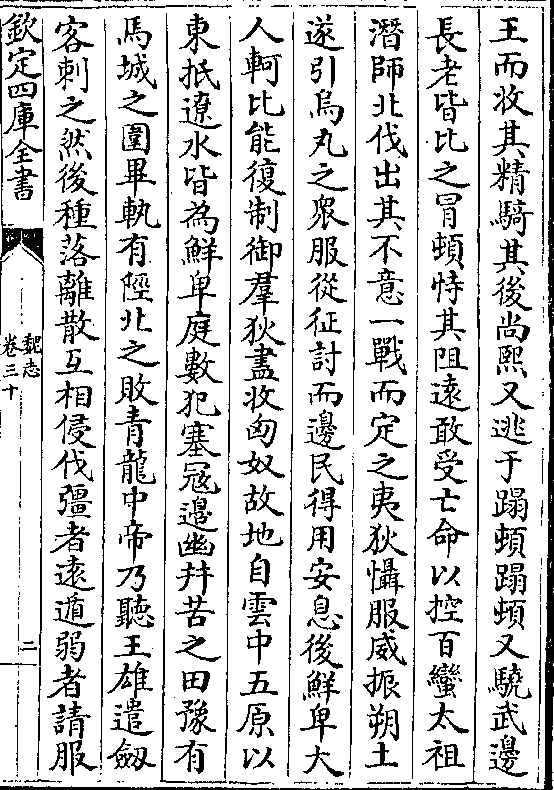 王而收其精騎其後尚熙又逃于蹋頓蹋頓又驍武邊
長老皆比之冒頓恃其阻遠敢受亡命以控百蠻太祖
潛師北伐出其不意一戰而定之夷狄懾服威振朔土
遂引烏丸之衆服從征討而邊民得用安息後鮮卑大
人軻比能復制御羣狄盡收匈奴故地自雲中五原以
東抵遼水皆為鮮卑庭數犯塞冦邉幽并苦之田豫有
馬城之圍畢軌有陘北之敗青龍中帝乃聽王雄遣劔
客刺之然後種落離散互相侵伐彊者遠遁弱者請服
欽定四庫全書
魏志
卷三十
二